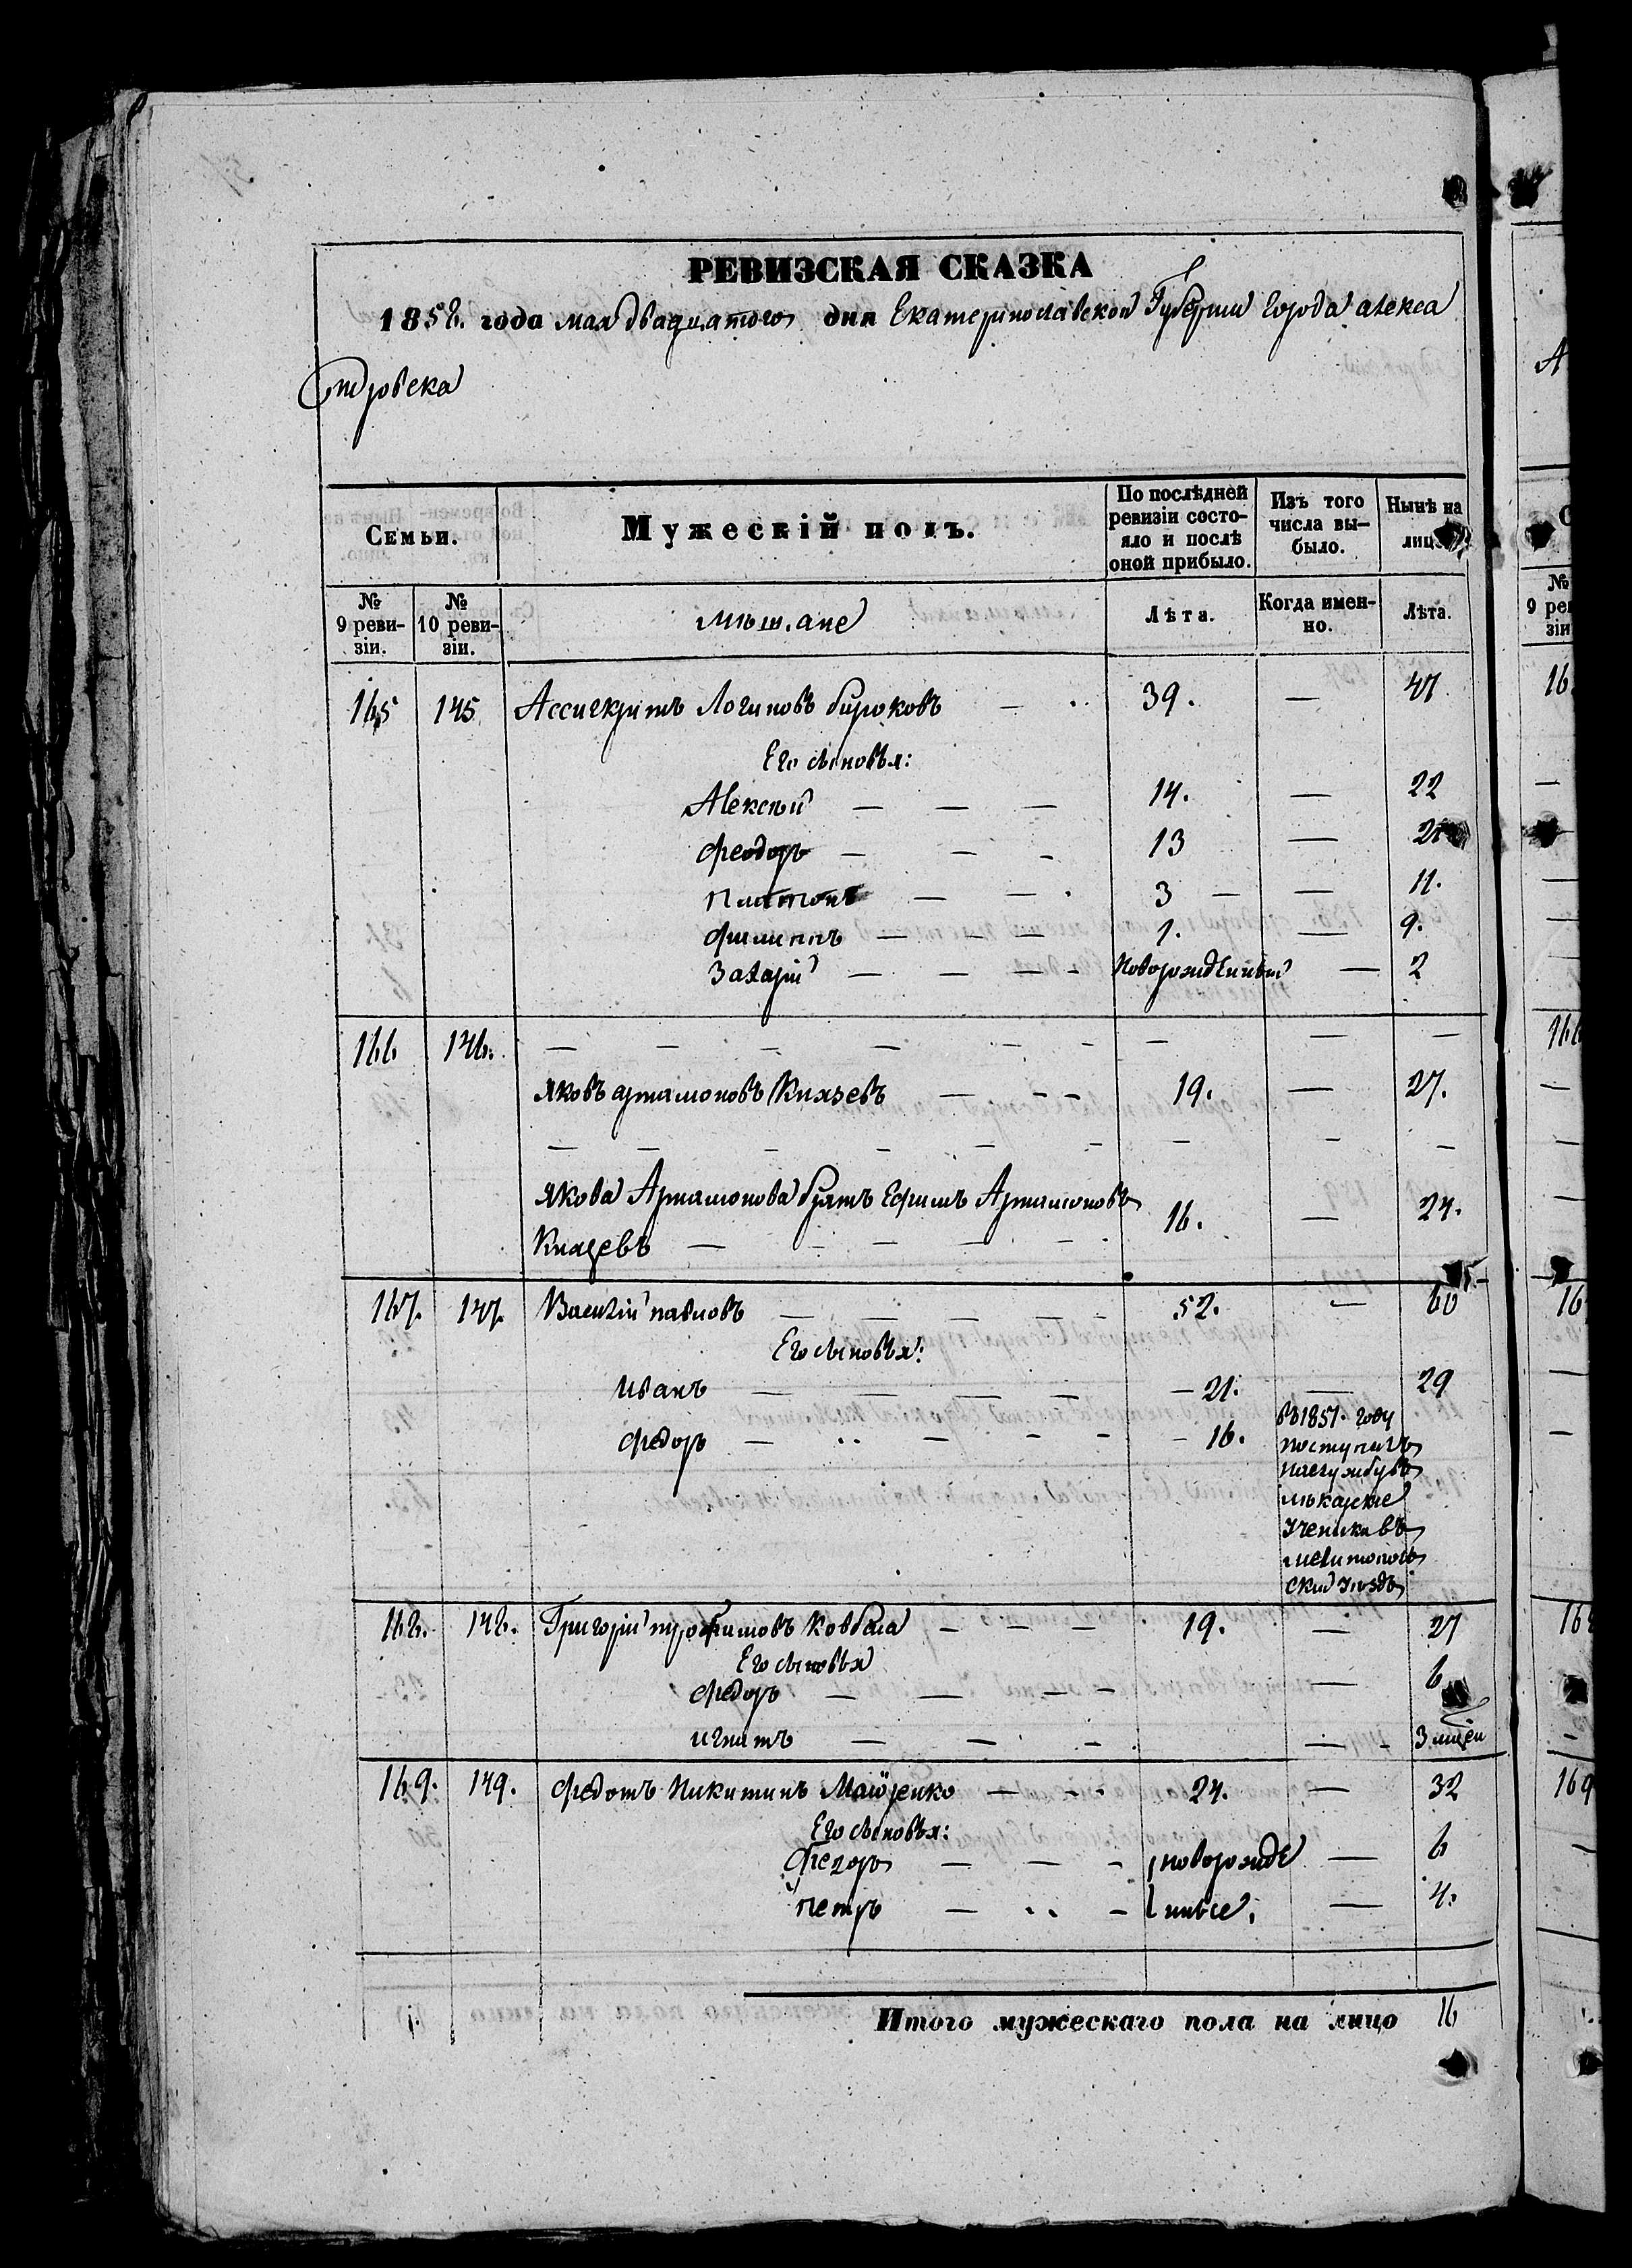 РЕВИЗСКАЯ СКАЗКА
1858. года мая двадцатого дня Екатеринославской Губерніи города алекса
ндровска
Семьи.
Мужескій полъ.
По послѣдней ревизіи состояло и послѣ оной прибыло.
Изъ того числа выбыло.
Нынѣ на лицо.
№ 9 ревизіи.
№ 10 ревизіи.
мѣщане
Лѣта.
Когда именно.
Лѣта.
165 145 Ассигкритъ Логиновъ бирюковъ — 39. — 47
Его сыновья:
Алексѣй — — — 14. — 22
феодоръ — — — 13 — 21
платонъ — — 3 — — 11.
филиппъ — — — 1. — 9.
Захарій — — — - новорожденный — 2
166 146. — — — — — - — — —
яковъ артамоновъ Князевъ — - - 19. — 27.
— — — — — - — — —
якова Артамонова братъ Ефимъ Артамоновъ
Князевъ — — — — — 16. — 24.
167. 147. Василій павловъ — — — — - 52. — 60
Его сыновья:
иванъ — — — — — 21. — 29
федоръ — — - - — 16.
въ 1851. году
поступилъ
лѣкарскіе
Ученики въ
мелитополь
скій Уѣздъ
168. 148. Григорій трофимовъ Ковбаса — — — 19. — 27
Его сыновья
федоръ — — — - — 6
игнатъ — — - — - 3 мѣсец
169. 149. федотъ Никитинъ Майоренко — - - 24. — 32
Его сыновья:
фегоръ — — - новорожде — 6
петръ — - нные. — 4.
Итого мужескаго пола на лицо 16
№
9 реви
зіи
16
166
16
168
169